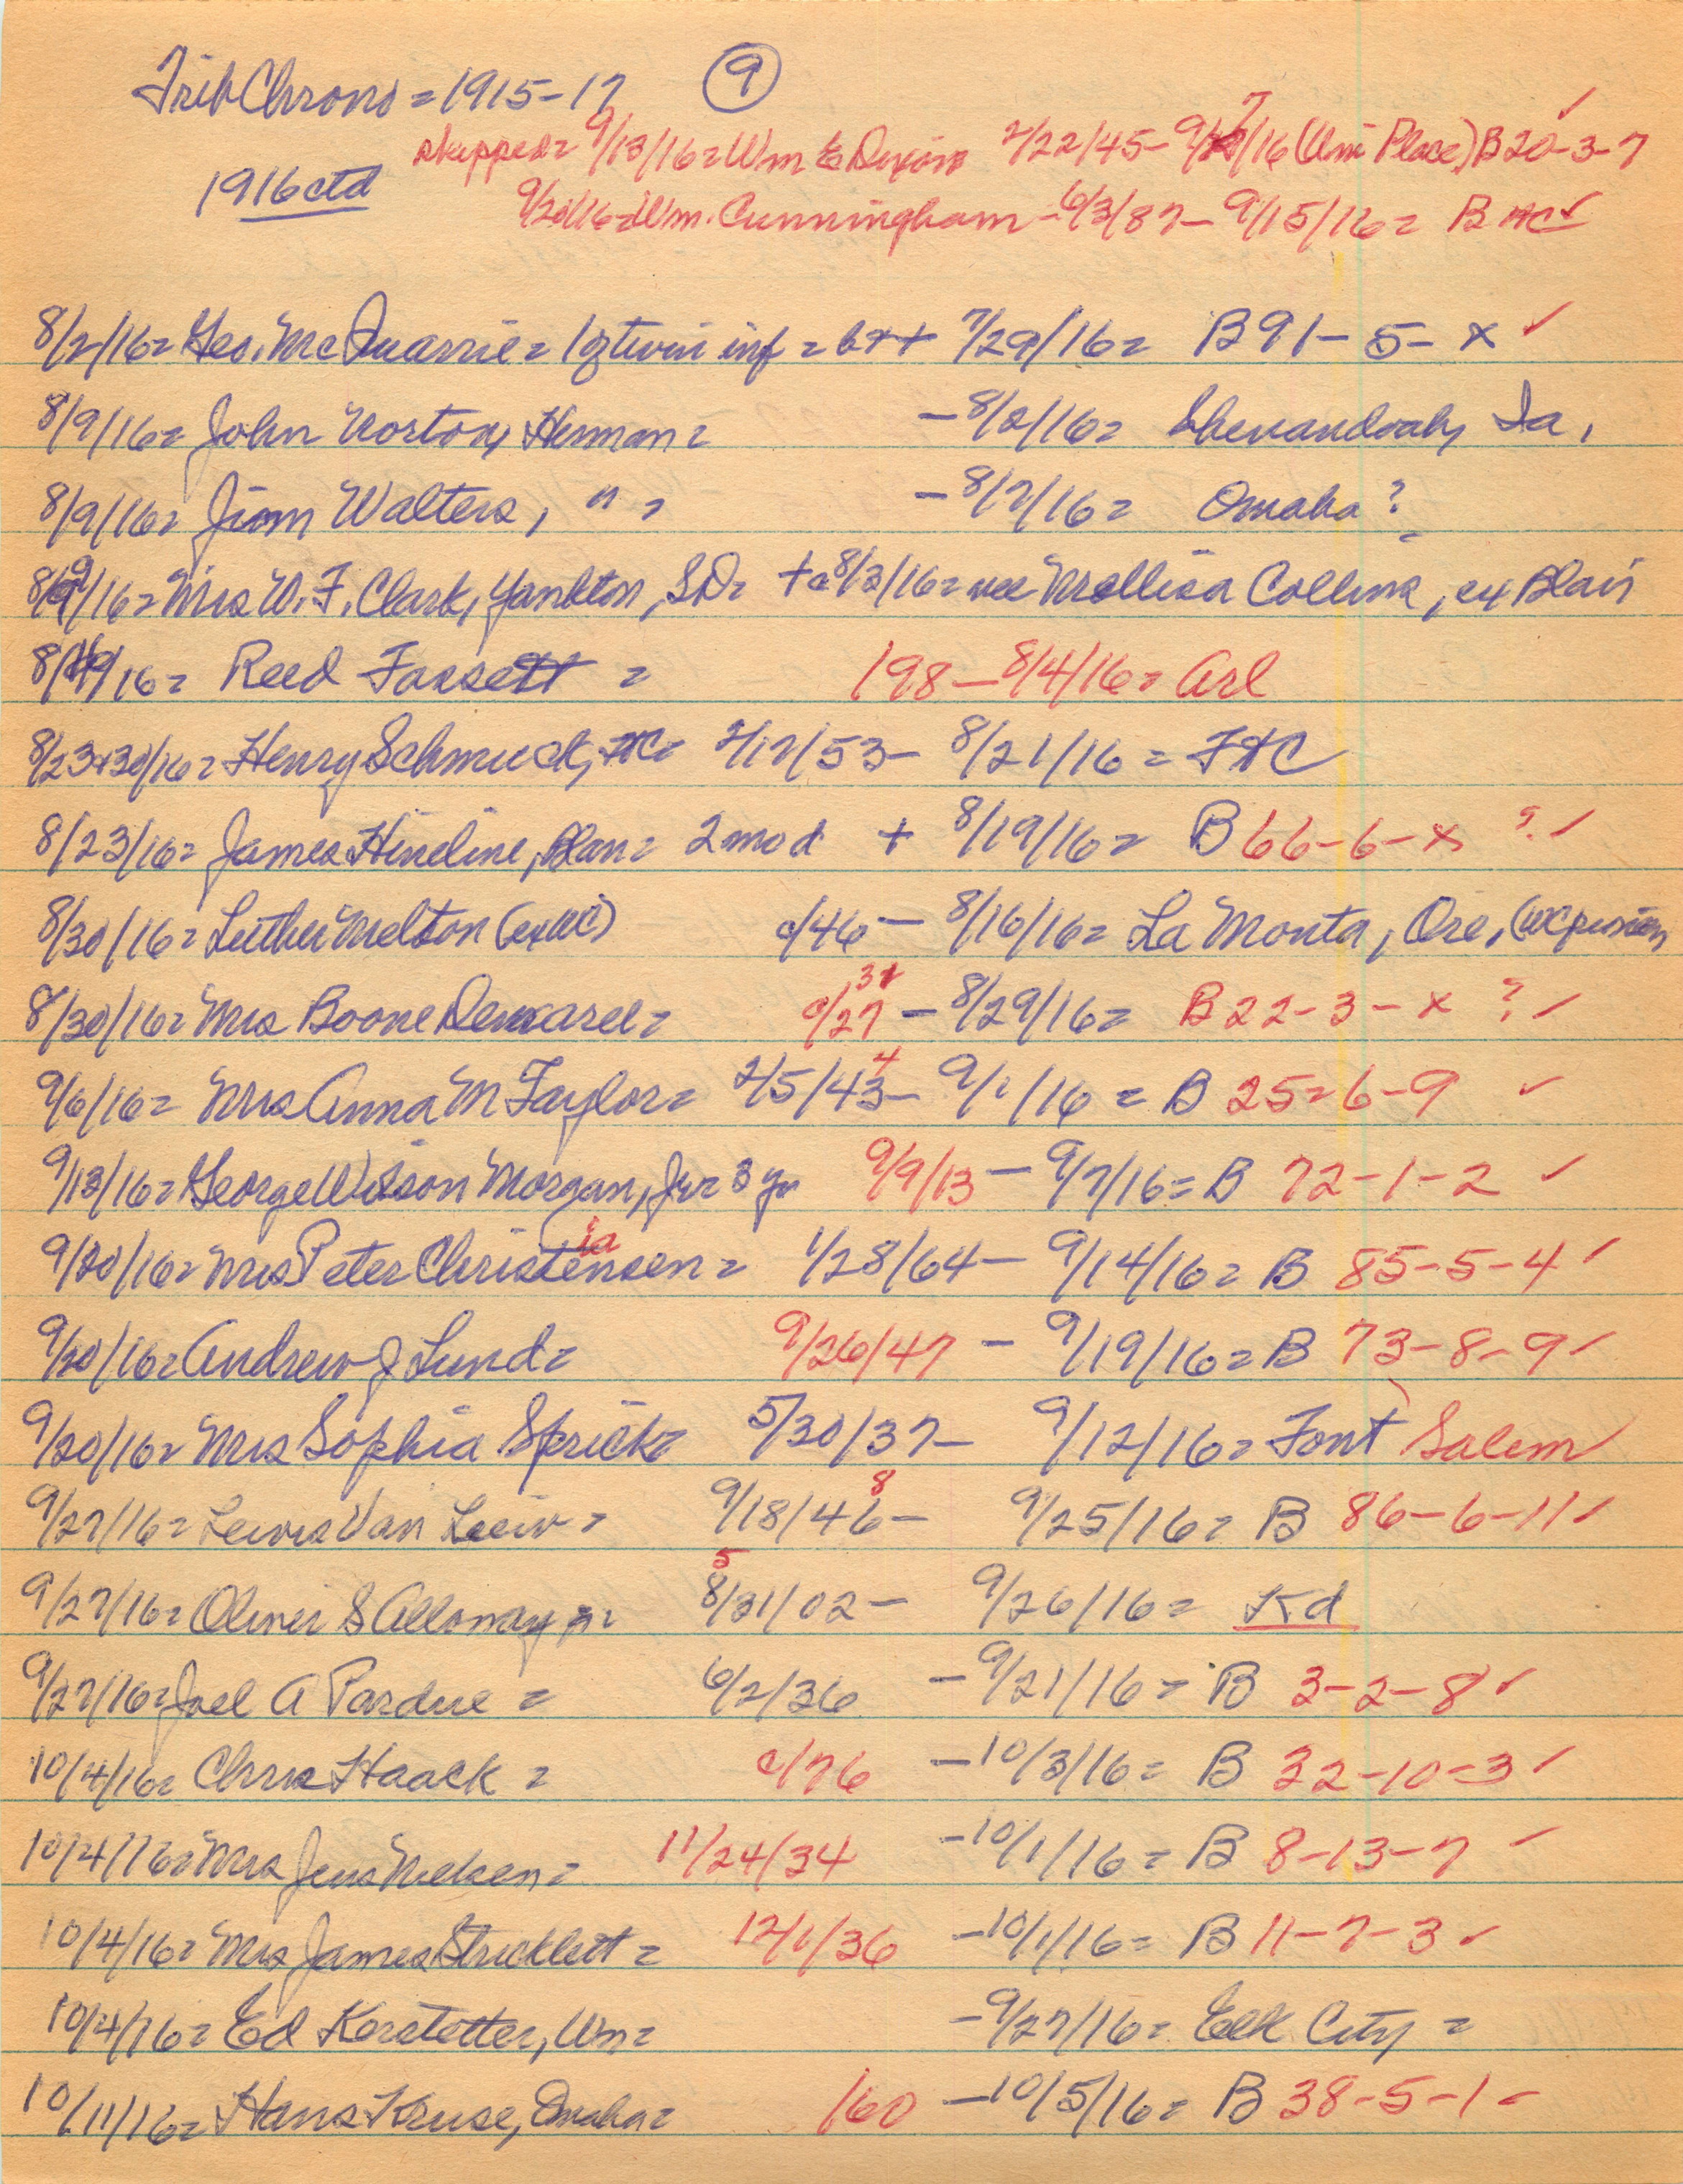 TribChrono = 1915-17 9
skipped = 9/13/16 = Wm E Dixon 2/22/45 - 9/7/16 (Uni Place) B 20-3-7 ✓
1916 ctd
9/20/16 = Wm. Cunningham - 6/3/87 - 9/15/16 = B HC ✓
8/2/16 = Geo. McQuarrie = 1 of twin inf = b ++ 7/29/16 = B 91-5-x ✓
8/9/16 = John Norton, Herman = - 8/2/16 = Shenandoah, Ia.
8/9/16 = Jim Walters, " = - 8/7/16 = Omaha ?
8/9/16 = Mrs W. F. Clark, Yankton, SD = + c 8/3/16 = nee Mellisa Collins, ex Blair
16 = Reed Fassett = 198 - 8/4/16 = Arl
8/23+30/16 = Henry Schmuck, HC = 2/17/53 - 8/21/16 = FHC
8/23/16 = James Hineline, Blair = 2 mo d + 8/19/16 = B 66-6-x ? ✓
8/30/16 = Luther Melton (ex WC) c/46 - 8/16/16 = La Monta, Ore, (WC
8/30/16 = Mrs Boone Demaree = c/27 - 8/29/16 = B 22-3-x ? ✓
9/6/16 = Mrs Anna M Taylor = 2/5/43 4 - 9/1/16 = B 25-6-9 ✓
9/13/16 = George Wilson Morgan, Jr = 3 yr 9/9/13 - 9/7/16 = B 72-1-2 ✓
9/20/16 = Mrs Peter Christensen ia = 1/28/64 - 9/14/16 = B 85-5-4 ✓
9/20/16 = Andrew J Lund = 9/26/47 - 9/19/16 = B 73-8-9 ✓
9/20/16 = Mrs Sophia Sprick = 5/30/37 - 9/12/16 = Font Salem
9/27/16 = Lewis Van Leiw = 9/18/46 8 - 9/25/16 = B 86-6-11 ✓
9/27/16 = Oliver S Alloway = 8/31/02 5 - 9/26/16 = Kd
9/27/16 = Joel A Pardue = 6/2/36 - 9/21/16 = B 3-2-8 ✓
10/4/16 = Chris Haack = c/76 - 10/3/16 = B 32-10-3 ✓
10/4/16 = Mrs Jens Nielsen = 11/24/34 - 10/1/16 = B 8-13-7 ✓
10/4/16 = Mrs James Stricklett = 12/1/36 - 10/1/16 = B 11-7-3 ✓
10/4/16 = Ed Kerstetter, Wn = - 9/27/16 = Elk City =
10/11/16 = Hans Kruse, Omaha = 160 - 10/5/16 = B 38-5-1 ✓